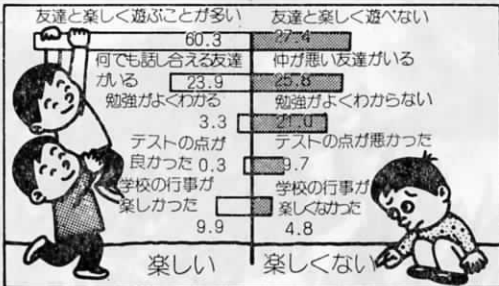 友達と楽しく遊ぶことが多い
60.3
何でも話し合える友達
がいる 23.9
勉強がよくわかる
3.3
テストの点が
良かった 0.3
学校の行事が
楽しかった
9.9
楽しい
友達と楽しく遊べない
27.4
仲が悪い友達がいる
25.8
勉強がよくわからない
21.0
テストの点が悪かった
9.7
学校の行事が
楽しくなかった
4.8
楽しくない